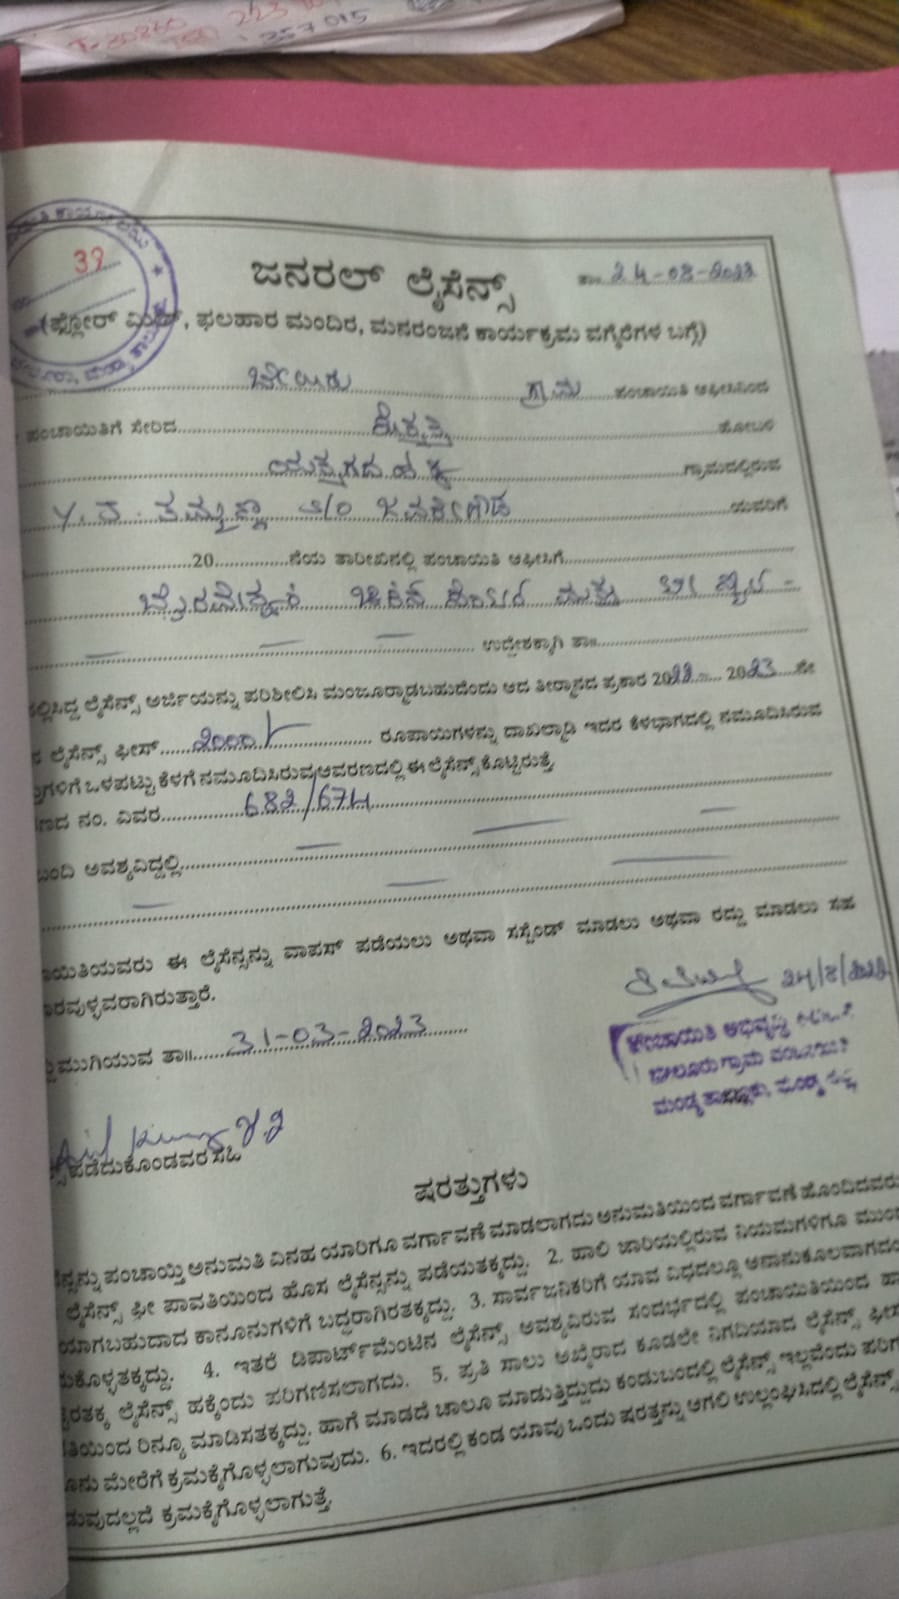 223
257015
39
ಜನರಲ್ ಲೈಸೆನ್ಸ್ ತಾ॥ 24-08-2022
(ಫ್ಲೋರ್ ಮಿಲ್, ಫಲಹಾರ ಮಂದಿರ, ಮನರಂಜನೆ ಕಾರ್ಯಕ್ರಮ ವಗೈರೆಗಳ ಬಗ್ಗೆ)
ಬೇಲೂರು ಗ್ರಾಮ ಪಂಚಾಯಿತಿ ಆಫೀಸಿನಿಂದ
ಪಂಚಾಯಿತಿಗೆ ಸೇರಿದ ಹೋಬಳಿ
ಗ್ರಾಮದಲ್ಲಿರುವ
Y.J. ತಮ್ಮಣ್ಣ S/O ಜವರೇಗೌಡ ಯವರಿಗೆ
20 ನೆಯ ತಾರೀಖಿನಲ್ಲಿ ಪಂಚಾಯಿತಿ ಆಫೀಸಿಗೆ
ಬೈರವೇಶ್ವರ ಚಿಕನ್ ಸೆಂಟರ್ ಮತ್ತು
ಉದ್ದೇಶಕ್ಕಾಗಿ ತಾ॥
ಸಲ್ಲಿಸಿದ್ದ ಲೈಸೆನ್ಸ್ ಅರ್ಜಿಯನ್ನು ಪರಿಶೀಲಿಸಿ ಮಂಜೂರ್ಮಾಡಬಹುದೆಂದು ಆದ ತೀರ್ಮಾನದ ಪ್ರಕಾರ 2022 2023 ನೇ
ಲೈಸೆನ್ಸ್ ಫೀಸ್ 2000/- ರೂಪಾಯಿಗಳನ್ನು ದಾಖಲ್ಮಾಡಿ ಇದರ ಕೆಳಭಾಗದಲ್ಲಿ ನಮೂದಿಸಿರುವ
ಗಳಿಗೆ ಒಳಪಟ್ಟು ಕೆಳಗೆ ನಮೂದಿಸಿರುವ ಆವರಣದಲ್ಲಿ ಈ ಲೈಸೆನ್ಸ್ ಕೊಟ್ಟಿರುತ್ತೆ.
ನಂ. ವಿವರ 682/674
ಬಂದಿ ಅವಶ್ಯವಿದ್ದಲ್ಲಿ
ಯಿತಿಯವರು ಈ ಲೈಸೆನ್ಸನ್ನು ವಾಪಸ್ ಪಡೆಯಲು ಅಥವಾ ಸಸ್ಪೆಂಡ್ ಮಾಡಲು ಅಥವಾ ರದ್ದು ಮಾಡಲು ಸಹ
ರವುಳ್ಳವರಾಗಿರುತ್ತಾರೆ.
24/8/2022
ಮುಗಿಯುವ ತಾ॥ 31-03-2023
ಪಂಚಾಯಿತಿ ಅಭಿವೃದ್ಧಿ
ಬೇಲೂರು ಗ್ರಾಮ ಪಂಚಾಯಿತಿ
ಮಂಡ್ಯ ತಾಲ್ಲೂಕು, ಮಂಡ್ಯ ಜಿಲ್ಲೆ
ಪಡೆದುಕೊಂಡವರ ಸಹಿ
ಷರತ್ತುಗಳು
ಪಂಚಾಯ್ತಿ ಅನುಮತಿ ವಿನಹ ಯಾರಿಗೂ ವರ್ಗಾವಣೆ ಮಾಡಲಾಗದು ಅನುಮತಿಯಿಂದ ವರ್ಗಾವಣೆ ಹೊಂದಿದವರು
ಲೈಸೆನ್ಸ್ ಫೀ ಪಾವತಿಯಿಂದ ಹೊಸ ಲೈಸೆನ್ಸನ್ನು ಪಡೆಯತಕ್ಕದ್ದು. 2. ಹಾಲಿ ಜಾರಿಯಲ್ಲಿರುವ ನಿಯಮಗಳಿಗೂ ಮುಂದೆ
ಯಾಗಬಹುದಾದ ಕಾನೂನುಗಳಿಗೆ ಬದ್ಧರಾಗಿರತಕ್ಕದ್ದು. 3. ಸಾರ್ವಜನಿಕರಿಗೆ ಯಾವ ವಿಧದಲ್ಲೂ ಅನಾನುಕೂಲವಾಗದಂ
ಕೊಳ್ಳತಕ್ಕದ್ದು. 4. ಇತರೆ ಡಿಪಾರ್ಟ್‌ಮೆಂಟಿನ ಲೈಸೆನ್ಸ್ ಅವಶ್ಯವಿರುವ ಸಂದರ್ಭದಲ್ಲಿ ಪಂಚಾಯಿತಿಯಿಂದ
ಲೈಸೆನ್ಸ್ ಹಕ್ಕೆಂದು ಪರಿಗಣಿಸಲಾಗದು. 5. ಪ್ರತಿ ಸಾಲು ಅಖೈರಾದ ಕೂಡಲೇ ನಿಗದಿಯಾದ ಲೈಸೆನ್ಸ್ ಫೀಸ್
ತಿಯಿಂದ ರಿನ್ಯೂ ಮಾಡಿಸತಕ್ಕದ್ದು. ಹಾಗೆ ಮಾಡದೆ ಚಾಲೂ ಮಾಡುತ್ತಿದ್ದುದು ಕಂಡುಬಂದಲ್ಲಿ ಲೈಸೆನ್ಸ್ ಇಲ್ಲವೆಂದು ಪರಿಗ
ಮೇರೆಗೆ ಕ್ರಮಕೈಗೊಳ್ಳಲಾಗುವುದು. 6. ಇದರಲ್ಲಿ ಕಂಡ ಯಾವು ಒಂದು ಷರತ್ತನ್ನು ಆಗಲಿ ಉಲ್ಲಂಘಿಸಿದಲ್ಲಿ ಲೈಸೆನ್ಸ್
ವುದಲ್ಲದೆ ಕ್ರಮಕೈಗೊಳ್ಳಲಾಗುತ್ತೆ.